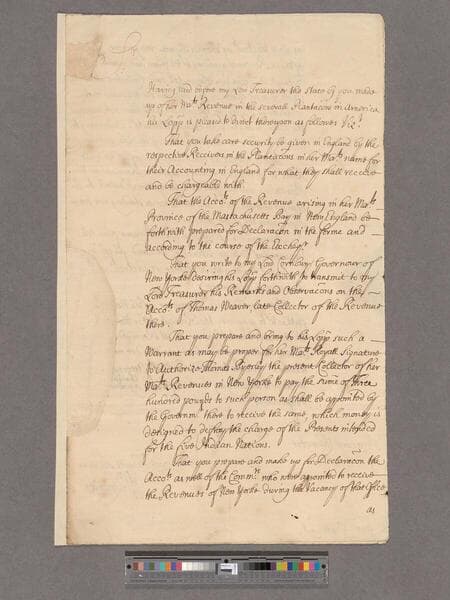 Sr
Having laid before my Lord Treasurer the State by you made
up of her Mats Revenue in the severall Plantacons in America
his Lopp is pleas'd to direct thereupon as follows Vizt
That you take care security be given in England by the
respective Receivers in the Plantations in her Mats name for
their Accounting in England for what they shall receive
and be chargeable with
That the Accots of the Revenue arising in her Mats
Province of the Massachusets Bay in New England be
forthwith prepared for Declaracon in the forme and
according to the course of the Excheqr
That you write to my Lord Cornbury Governour of
New Yorke desiring his Lopp forthwith to transmit to my
Lord Treasurer his Remarks and Observacons on the
Accots of Thomas Weaver late Collector of the Revenue
there
That you prepare and bring to his Lopp such a
Warrant as may be proper for her Mats Royall Signature
to Authorize Thomas Byerley the present Collector of her
Mats Revenues in New Yorke to pay the sume of Three
hundred pounds to such person as shall be appointed by
the Governmt there to receive the same, which money is
designed to defray the charge of the Presents intended
for the five Indian Nations.
That you prepare and make up for Declaracon the
Accots as well of the Commrs who were appointed to receive
the Revenues of New Yorke during the Vacancy of that Office
as